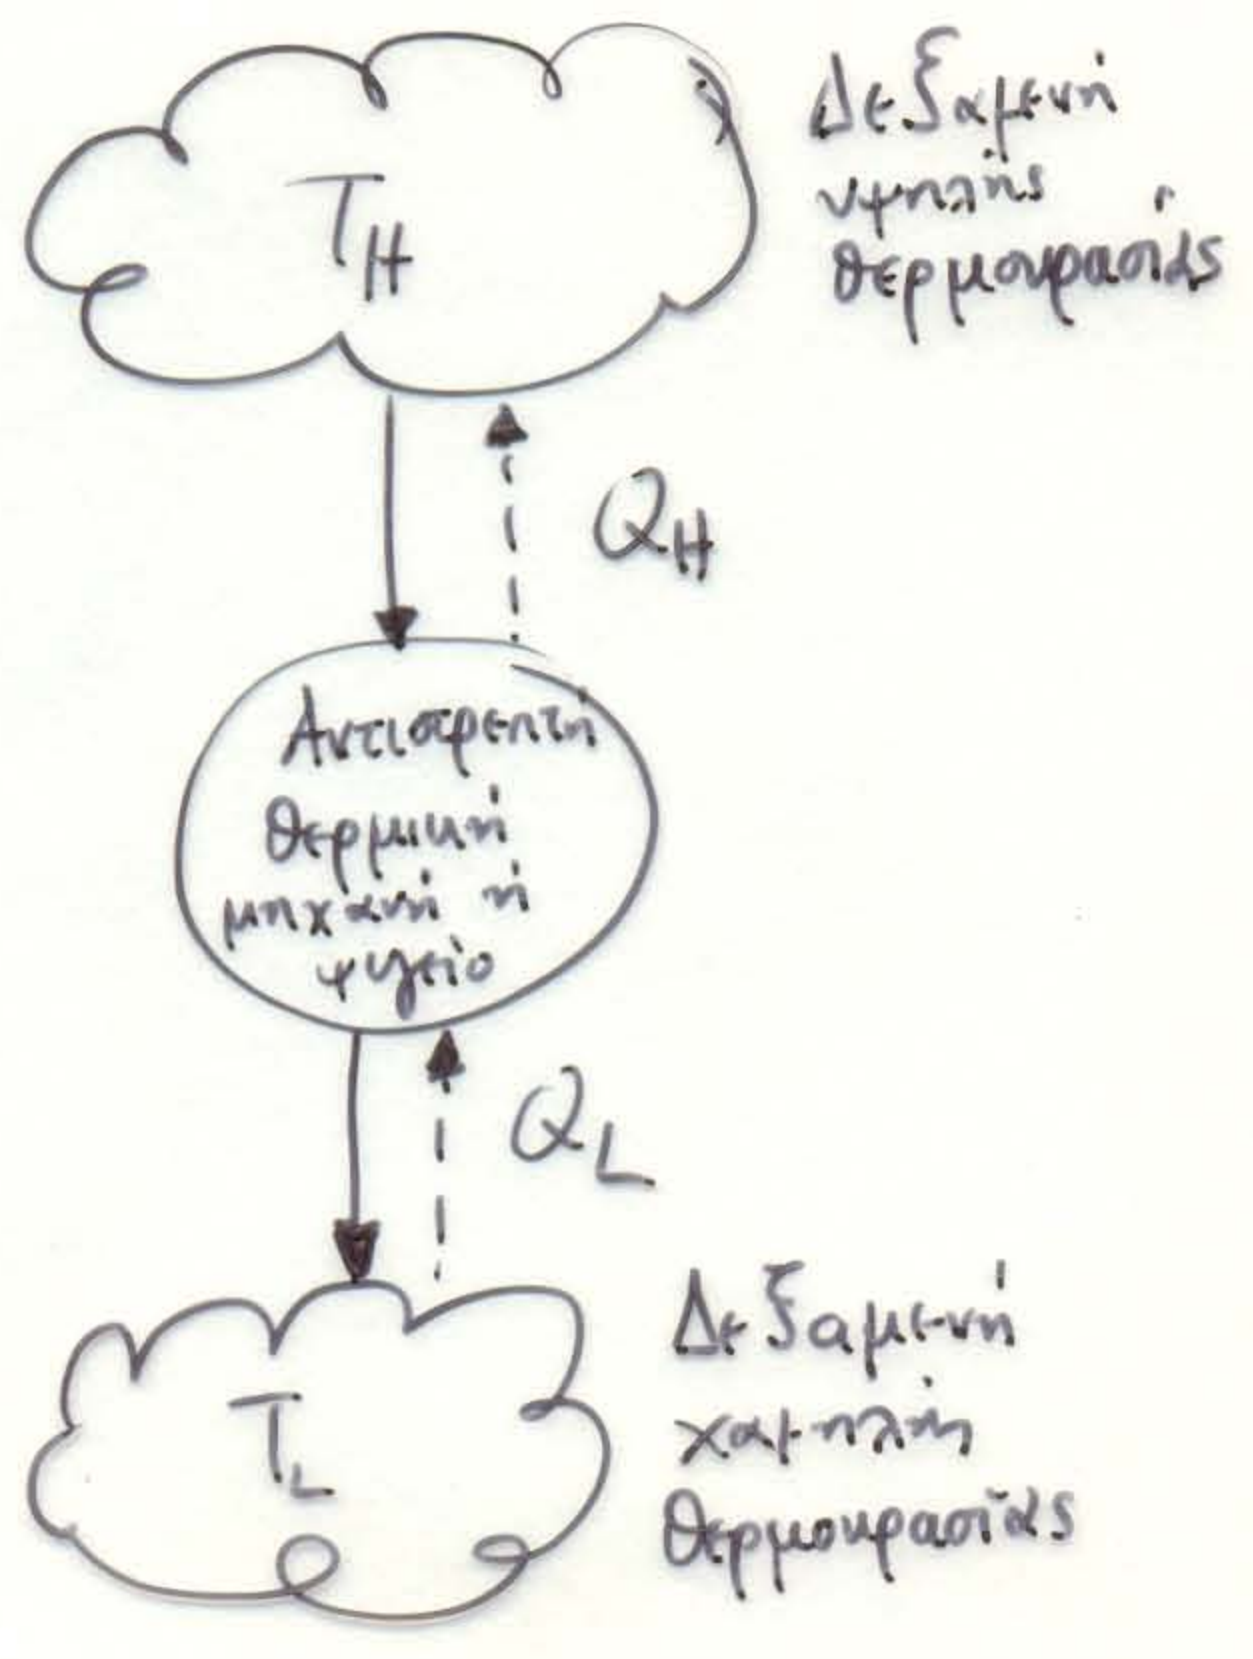 Δεξαμενή
υψηλής
θερμοκρασίας
T_H
Q_H
Αντιστρεπτή
θερμική
μηχανή ή
ψυγείο
Q_L
Δεξαμενή
χαμηλή
θερμοκρασίας
T_L